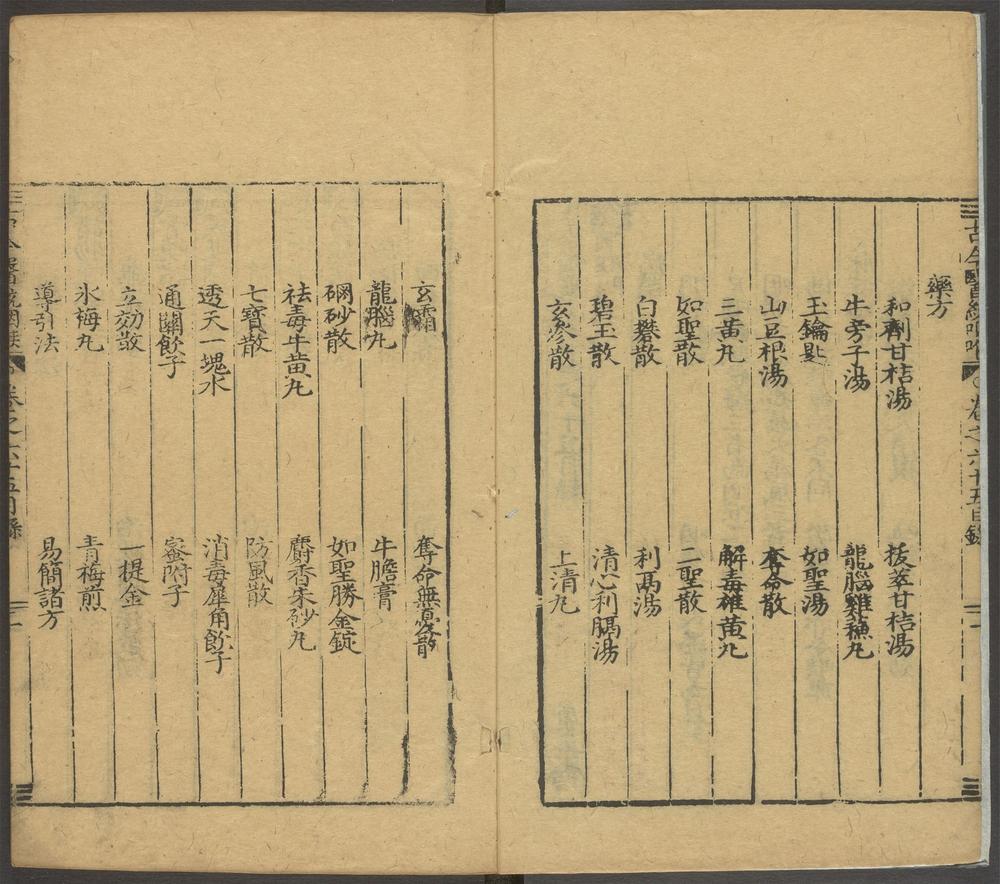 藥方
和劑甘桔湯
拔萃甘桔湯
牛旁子湯
龍腦雞蘇丸
玉鑰匙
如聖湯
山豆根湯
奪命散
三黃丸
解毒雄黃丸
如聖散
二聖散
白礬散
利膈湯
碧玉散
清心利膈湯
玄參散
上清丸
古今醫統
卷之六十五目錄
玄霜
奪命無憂散
龍腦丸
牛膽膏
硼砂散
如聖勝金錠
祛毒牛黃丸
麝香朱砂丸
七寶散
防風散
透天一塊水
消毒犀角飲子
通關飲子
蜜附子
立効散
一提金
氷梅丸
青梅煎
導引法
易簡諸方
卷之六十五目錄